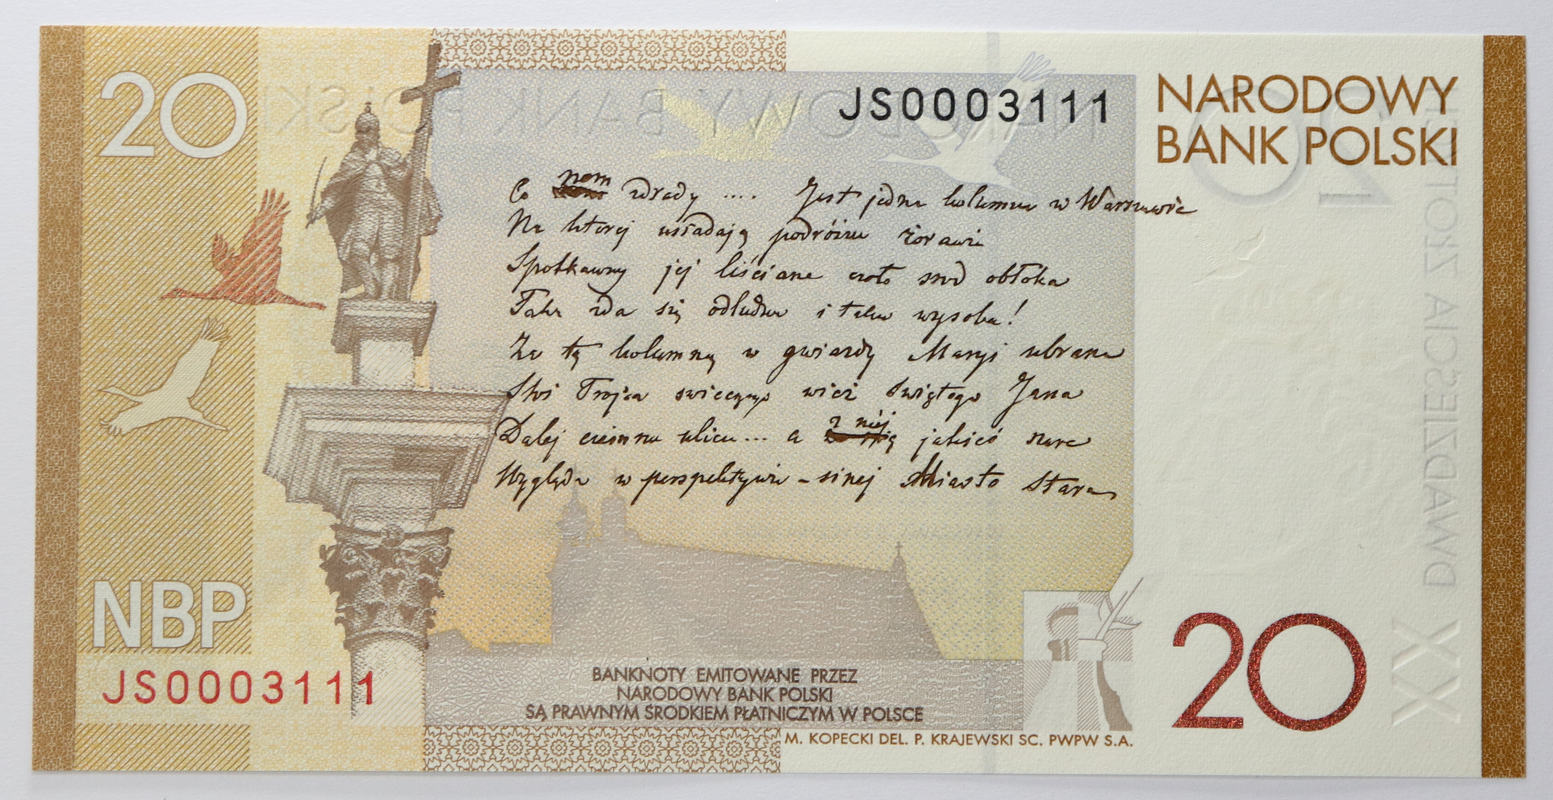 20
JS0003111
NARODOWY
BANK POLSKI
Co nam zdrady .... Jest jedna kolumna w Warszawie
Na ktorej usiadają podróżne żorawie
Spotkawszy jej liściane czoło srod obłoka
Taka zda się odludna i taka wysoka!
Za tą kolumną w gwiazdy Maryi ubrana
Stoi Trojca swiecących wież świętego Jana
Dalej ciemna ulica... a z niéj jakieś szare
Wygląda w perspektywie – sinej Miasto Stare
NBP
JS0003111
BANKNOTY EMITOWANE PRZEZ
NARODOWY BANK POLSKI
SĄ PRAWNYM ŚRODKIEM PŁATNICZYM W POLSCE
M. KOPECKI DEL. P. KRAJEWSKI SC. PWPW S.A.
20
XX